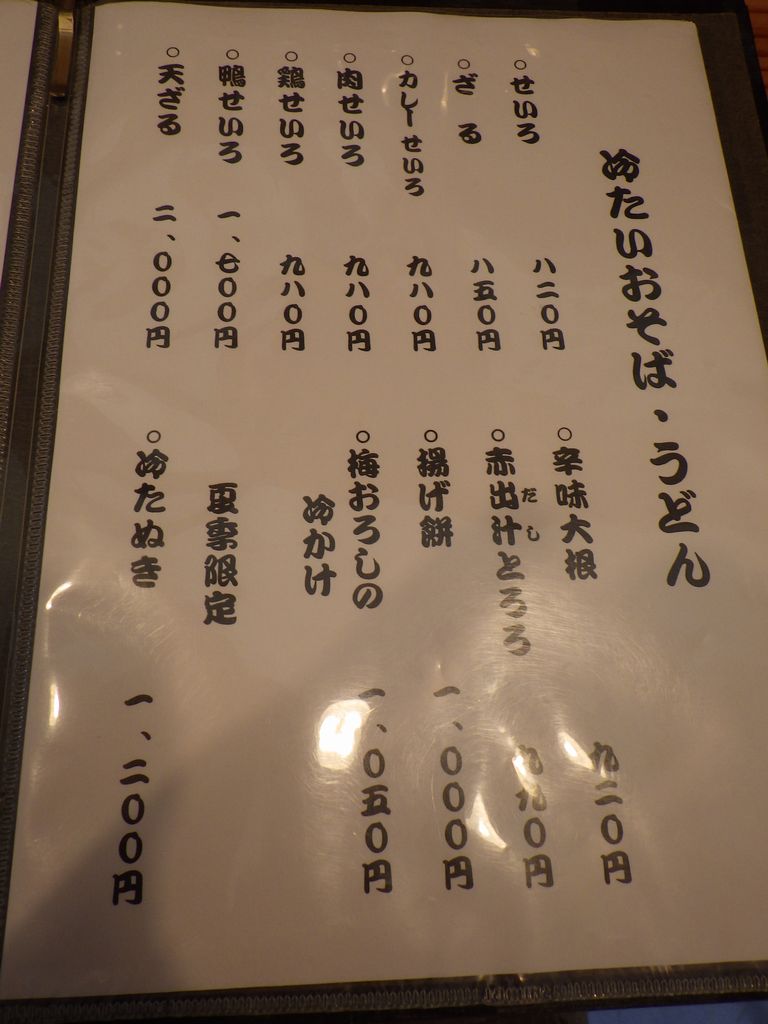 冷たいおそば・うどん
○せいろ 八二〇円
○ざる 八五〇円
○カレーせいろ 九八〇円
○肉せいろ 九八〇円
○鶏せいろ 九八〇円
○鴨せいろ 一、七〇〇円
○天ざる 二、〇〇〇円
○辛味大根 九二〇円
○赤出汁とろろ 九九〇円
だし
○揚げ餅 一、〇〇〇円
○梅おろしの
冷かけ 一、〇五〇円
夏季限定
○冷たぬき 一、二〇〇円